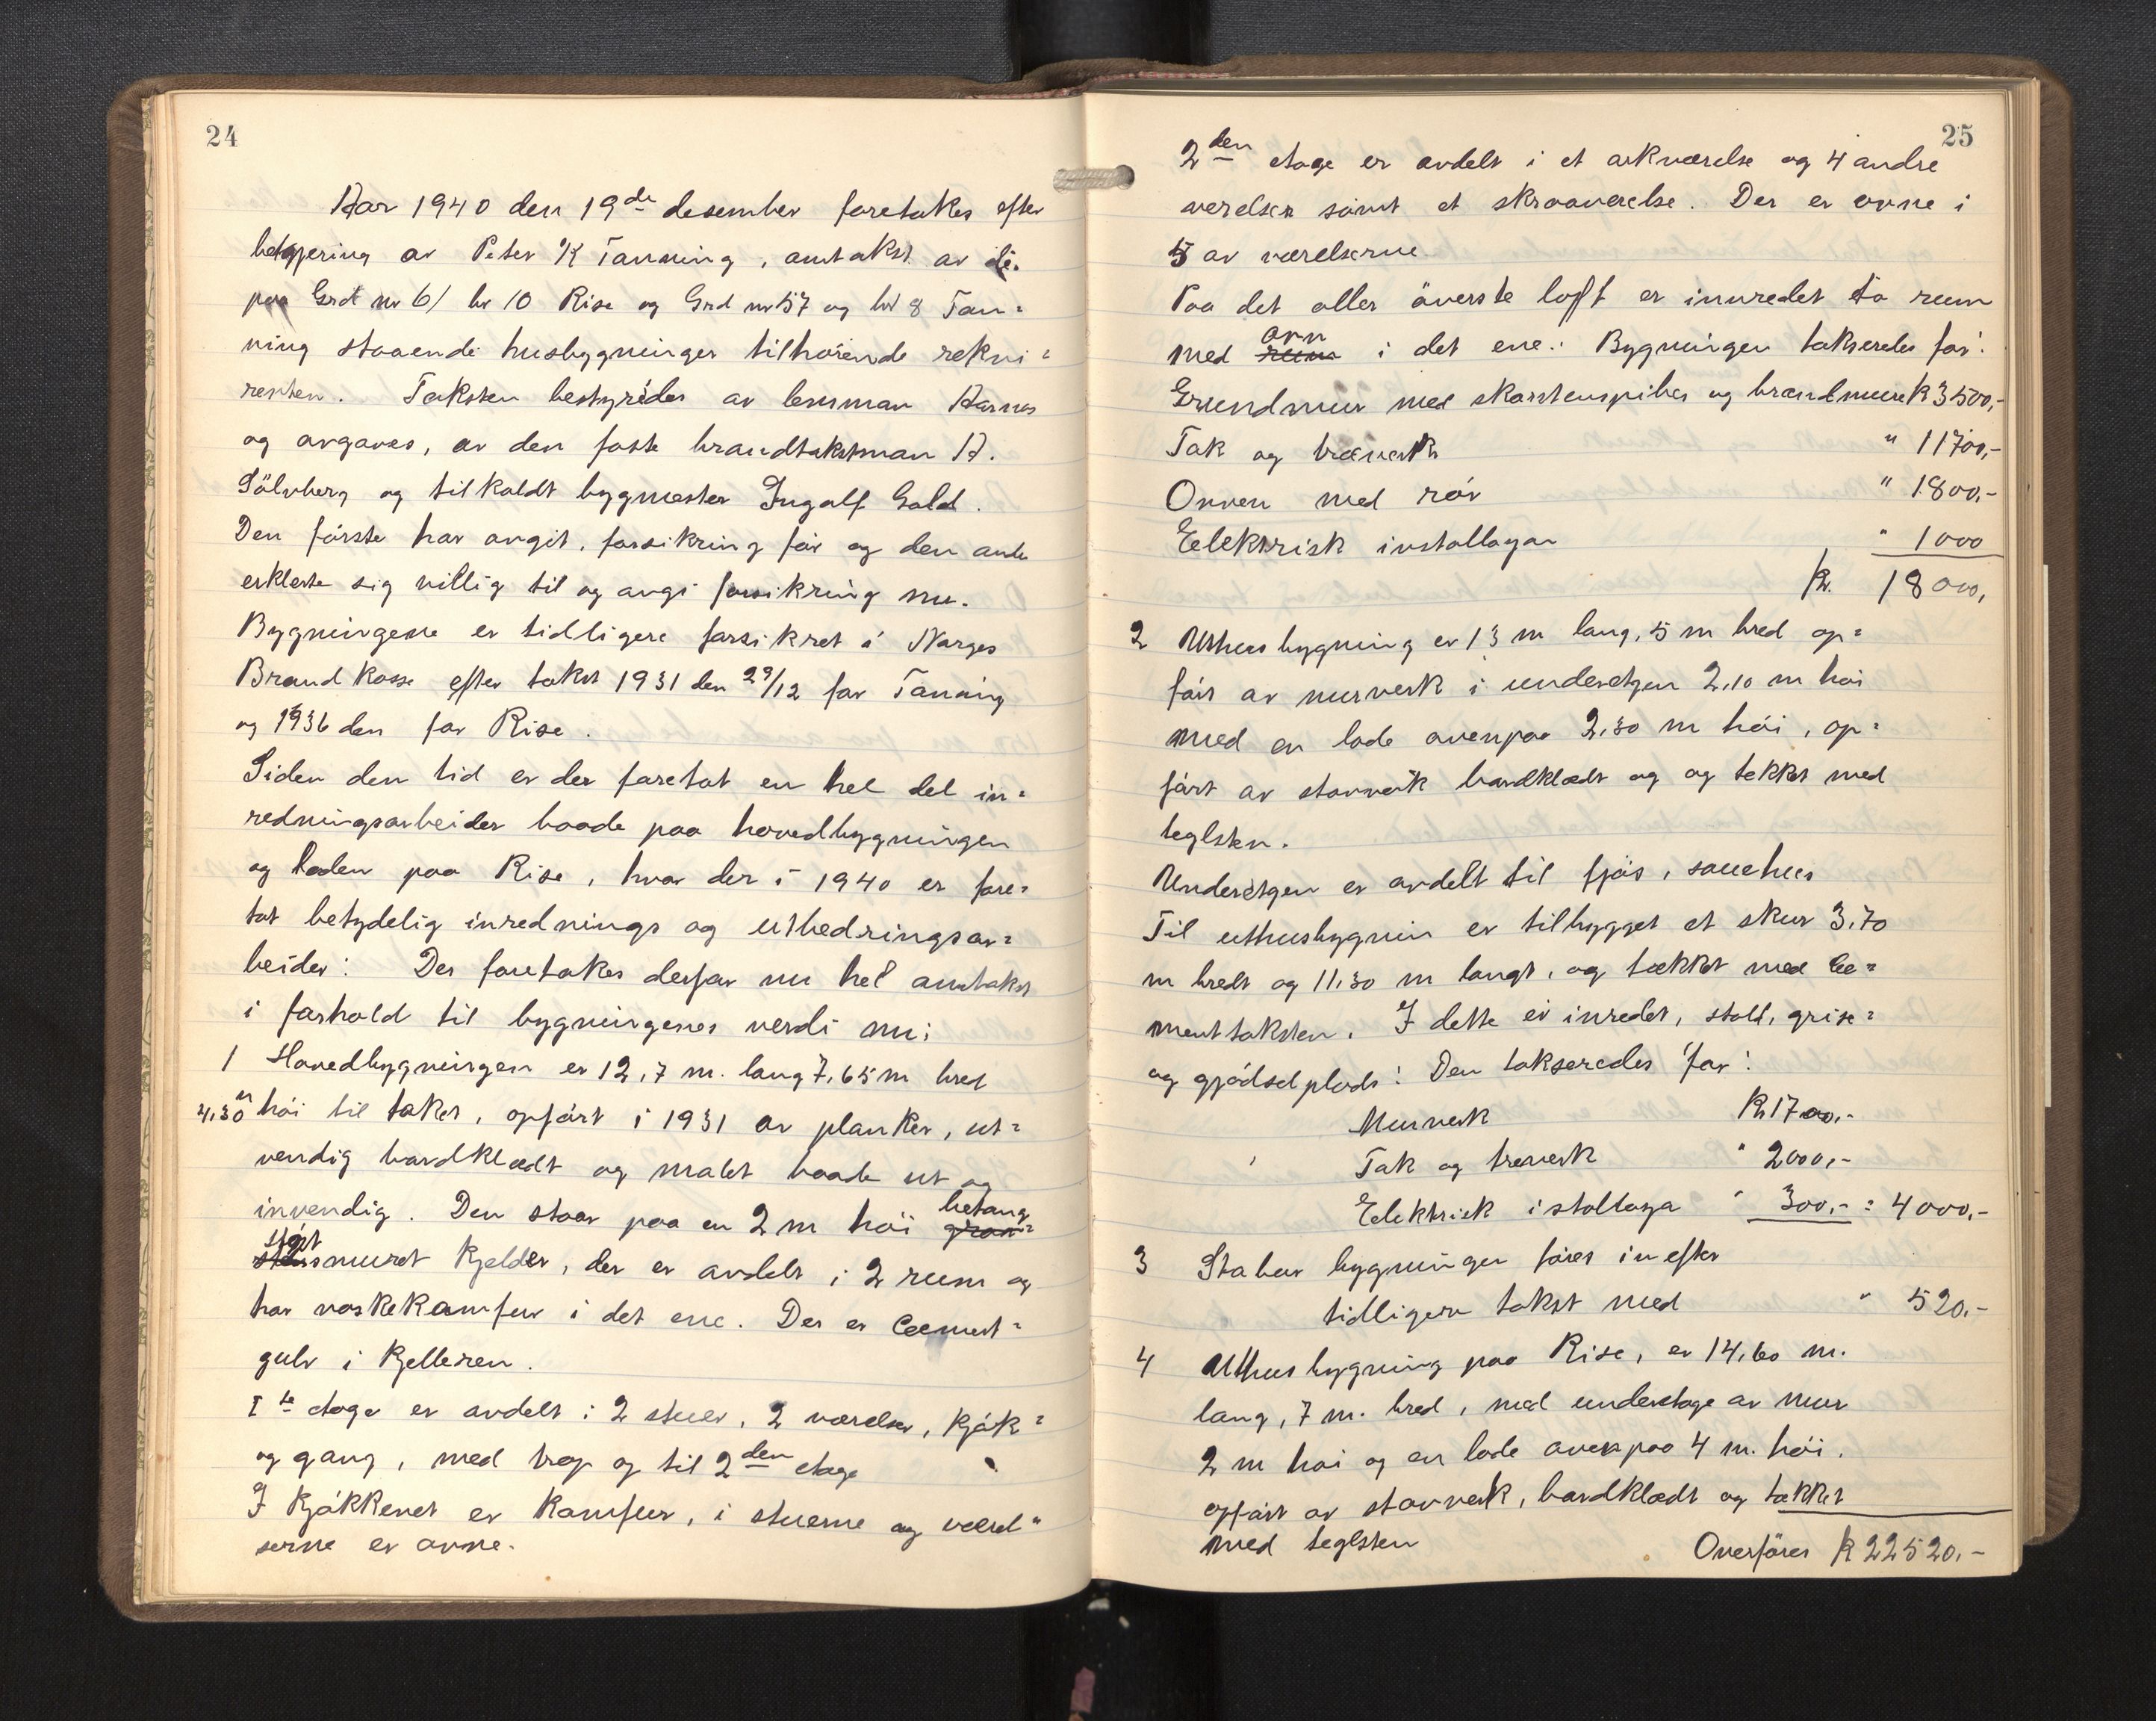 24
Aar 1940 den 19de desember foretakes efter
begjæring av Peter K Tanning, omtakst av de
paa Grd nr 61 br 10 Rise og Grd nr 57 og br 8 Tan=
ning staaende husbygninger tilhörende rekvi=
renten. Taksten bestyredes av lensman Aarnes
og avgaves, av den faste brandtakstman A.
Sölvberg og tilkaldt bygmester Ingolf Gald.
Den förste har avgit, forsikring för og den ande
erklerte sig villig til og avgi forsikring nu.
Bygningene er tidligere forsikret i Norges
Brandkasse efter takst 1931 den 29/12 for Taning
og 1936 den for Rise.
Siden den tid er der foretat en hel del in=
redningsarbeider baade paa hovedbygningen
og loden paa Rise, hvor der i 1940 er fore=
tat betydelig inrednings og utbedringsar=
beider: Der foretakes derfor nu hel omtakst
i forhold til bygningenes verdi nu:
1 Hovedbygningen er 12,7 m. lang 7,65 m bred
4,30 m höi til taket, opfört i 1931 av planker, ut=
vendig bordklædt og malet baade ut og
invendig. Den staar paa en 2 m höi betong
gran=
stöpt
stens muret kjelder, der er avdelt i 2 rum og
har vaskekamfur i det ene. Der er Cement=
gulv i kjelleren.
1te etage er avdelt i 2 stuer, 2 værelser, kjök=
og gang, med trap og til 2den etage
I kjökkenet er kamfur, i stuerne og værel"
serne er ovne.
25
2den etage er avdelt i et arkværelse og 4 andre
værelser samt et skraaværelse. Der er ovne i
5 av værelserne
Paa det aller överste loft er innredet to rum
med rum ovn i det ene: Bygningen takseredes för:
Grundmur med skorstenspiber og brandmure K 3500,-
Tak og træverk " 11700,-
Ovnen med rör " 1800,-
Eelektrisk installasjon " 1000
Kr. 18000,
2 Uthusbygning er 13 m lang, 5 m bred op=
fört av murverk i underetgen 2,10 m höi
med en lade ovenpaa 2,30 m höi, op=
fört av stavverk bordklædt og og tekket med
teglsten.
Underetgen er avdelt til fjös, sauehus
Til uthusbygnin er tilbygget et skur 3,70
m bredt og 11,30 m langt, og tækket med Ce=
menttaksten. I dette er inredet, stall, grise=
og gjödselplads: Den takseredes för:
Murverk Kr 1700,-
Tak og treverk " 2000,-
Eelektrisk istallasja " 300,- = 4000,-
3 Stabur bygningen föres in efter
tidligere takst med " 520.-
4 Uthusbygning paa Rise, er 14,60 m.
lang, 7 m. bred, med underetage av mur
2 m höi og en lade ovenpaa 4 m. höi.
opfört av stavverk, bordklædt og tækket
med teglsten Overföres K 22520,-